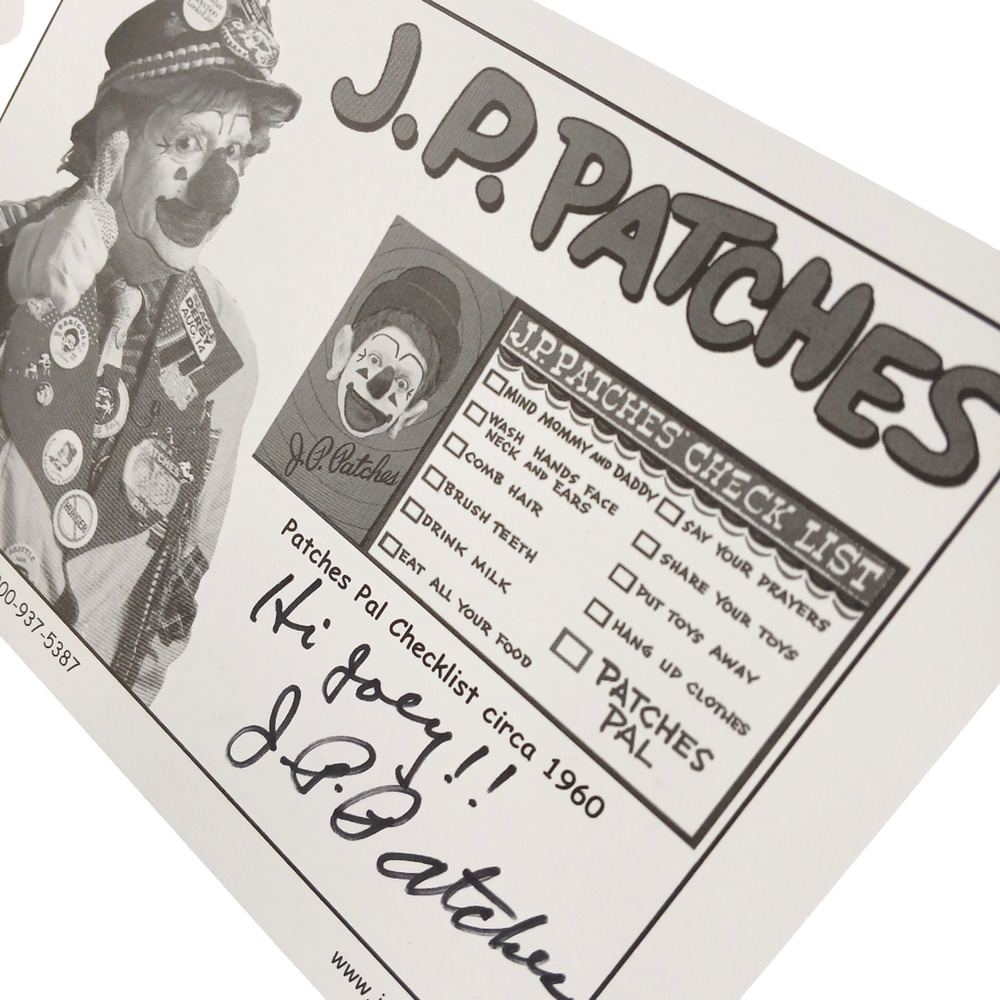 J.P. PATCHES
BEAGLE
DERBY
AUG 14
J.P. Patches
J.P. PATCHES' CHECK LIST
MIND MOMMY AND DADDY
WASH HANDS FACE
NECK AND EARS
COMB HAIR
BRUSH TEETH
DRINK MILK
EAT ALL YOUR FOOD
SAY YOUR PRAYERS
SHARE YOUR TOYS
PUT TOYS AWAY
HANG UP CLOTHES
PATCHES
PAL
Patches Pal Checklist circa 1960
Hi Joey!!
J.P. Patches
00-937-5387
www.j